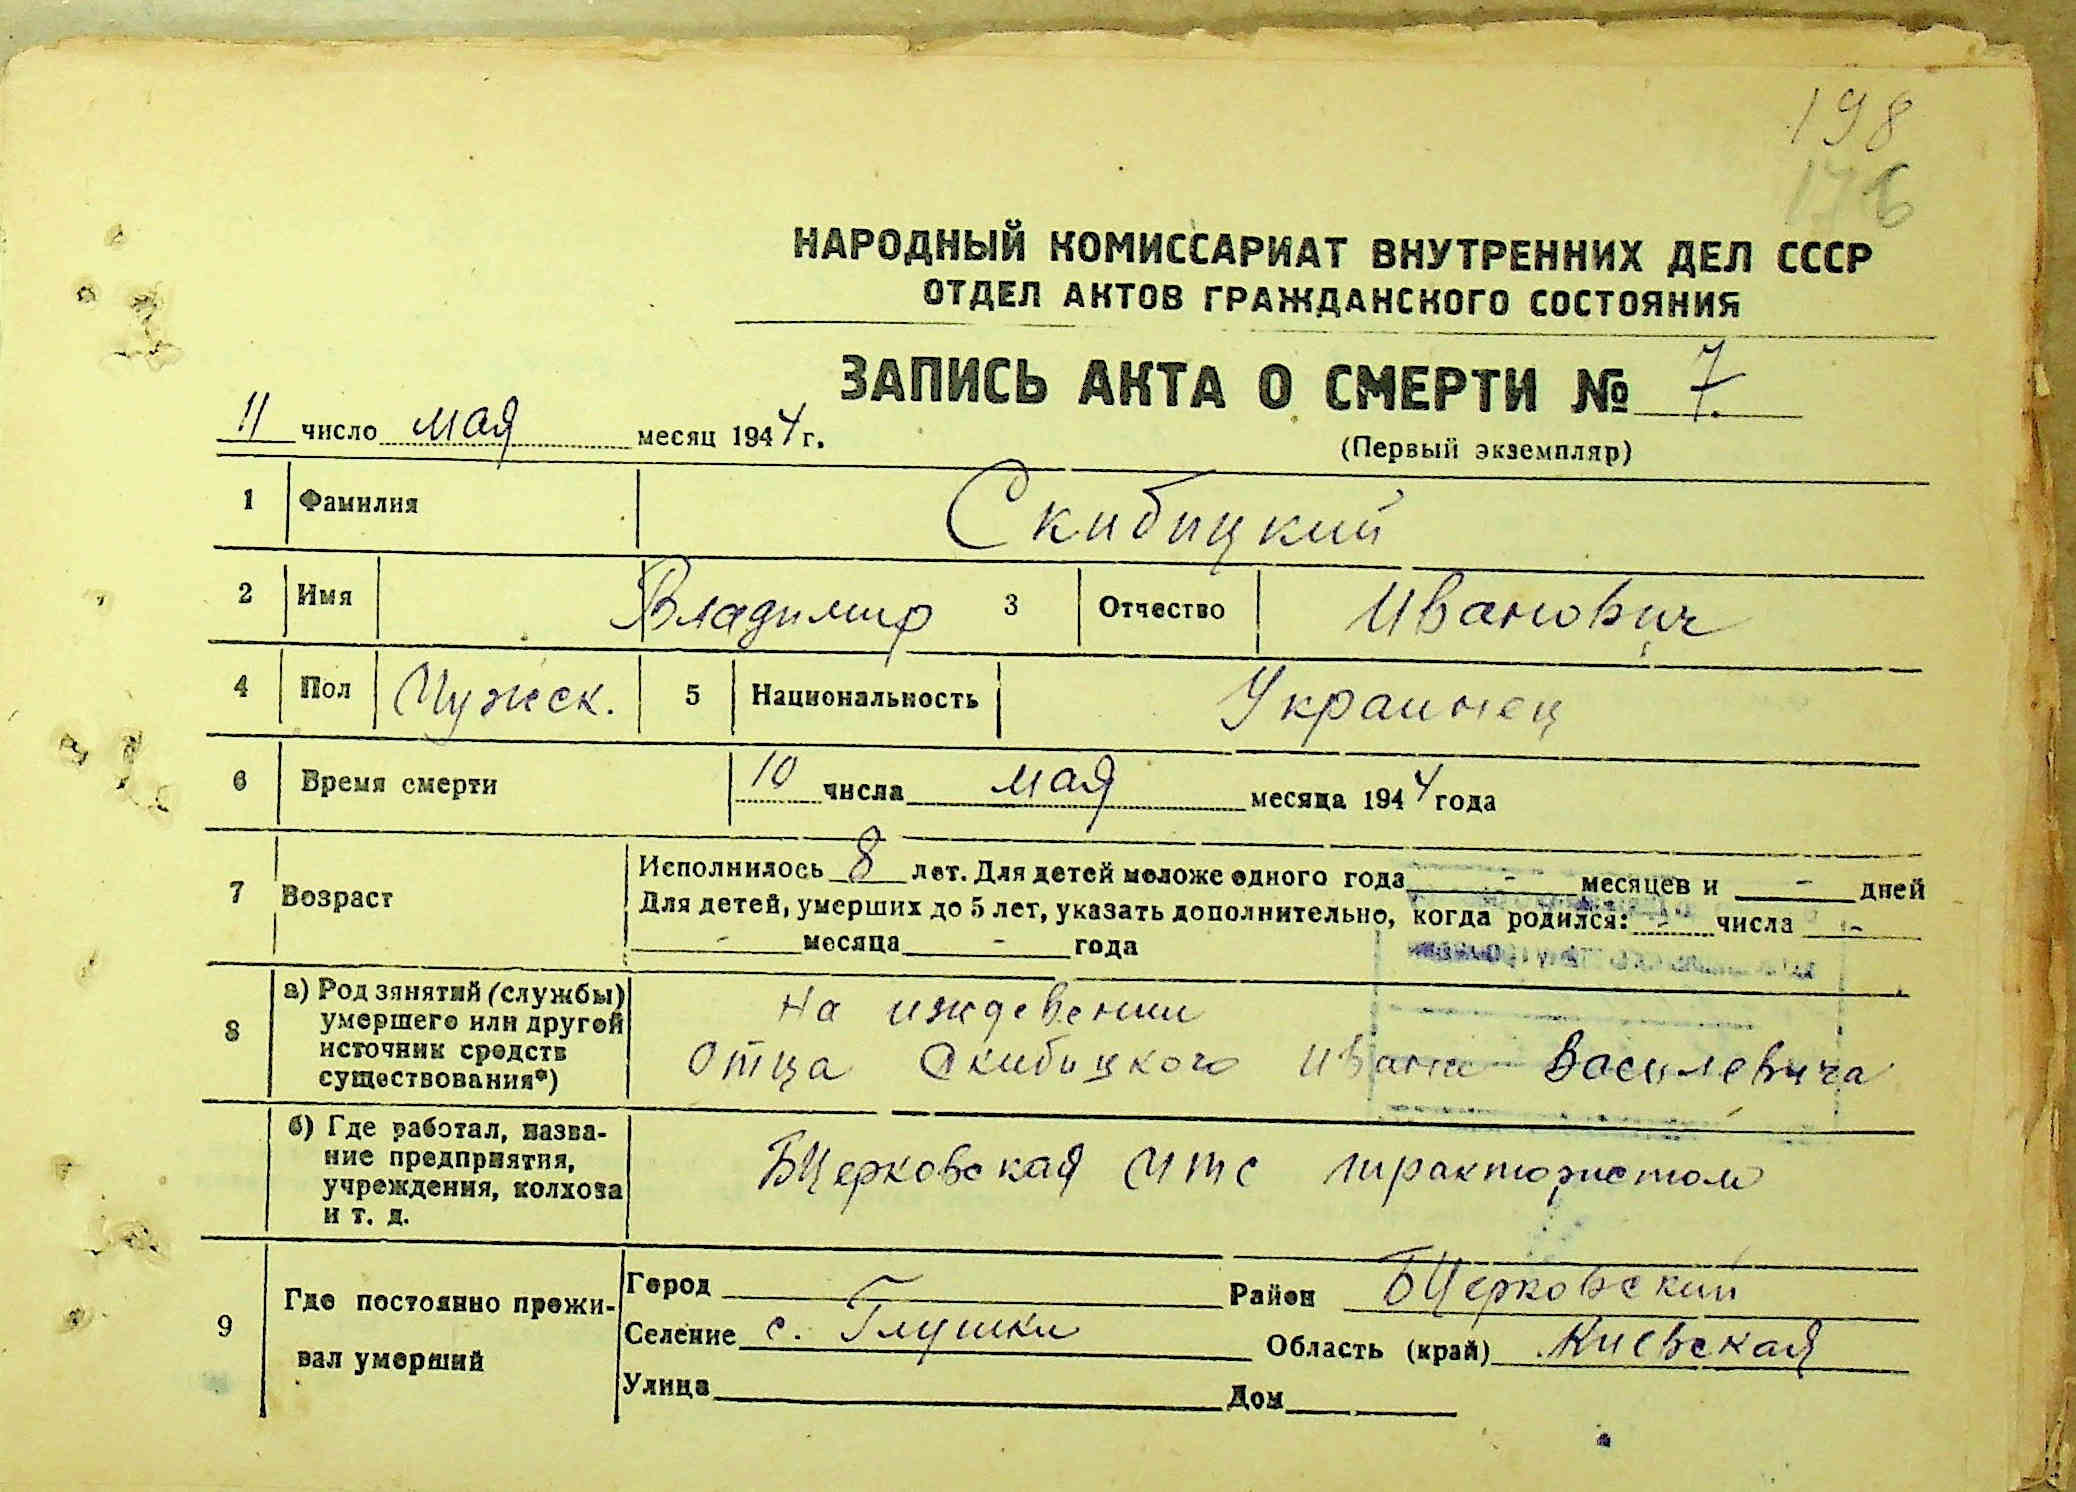 198
176
НАРОДНЫЙ КОМИССАРИАТ ВНУТРЕННИХ ДЕЛ СССР
ОТДЕЛ АКТОВ ГРАЖДАНСКОГО СОСТОЯНИЯ
ЗАПИСЬ АКТА О СМЕРТИ № 7.
11 число мая месяц 1944 г.
(Первый экземпляр)
1 Фамилия Скибицкий
2 Имя Владимир 3 Отчество Иванович
4 Пол Мужск. 5 Национальность Украинец
6 Время смерти 10 числа мая месяца 1944 года
7 Возраст
Исполнилось 8 лет. Для детей моложе одного года - месяцев и - дней
Для детей, умерших до 5 лет, указать дополнительно, когда родился: - числа -
- месяца - года
8
а) Род занятий (службы)
умершего или другой
источник средств
существования*)
На иждевении
Отца Скибицкого Ивана Василевича
б) Где работал, назва-
ние предприятия,
учреждения, колхоза
и т. д.
БЦерковская МТС трактористом
9
Где постоянно прожи-
вал умерший
Город Район БЦерковский
Селение с. Глушки Область (край) Киевская
Улица Дом